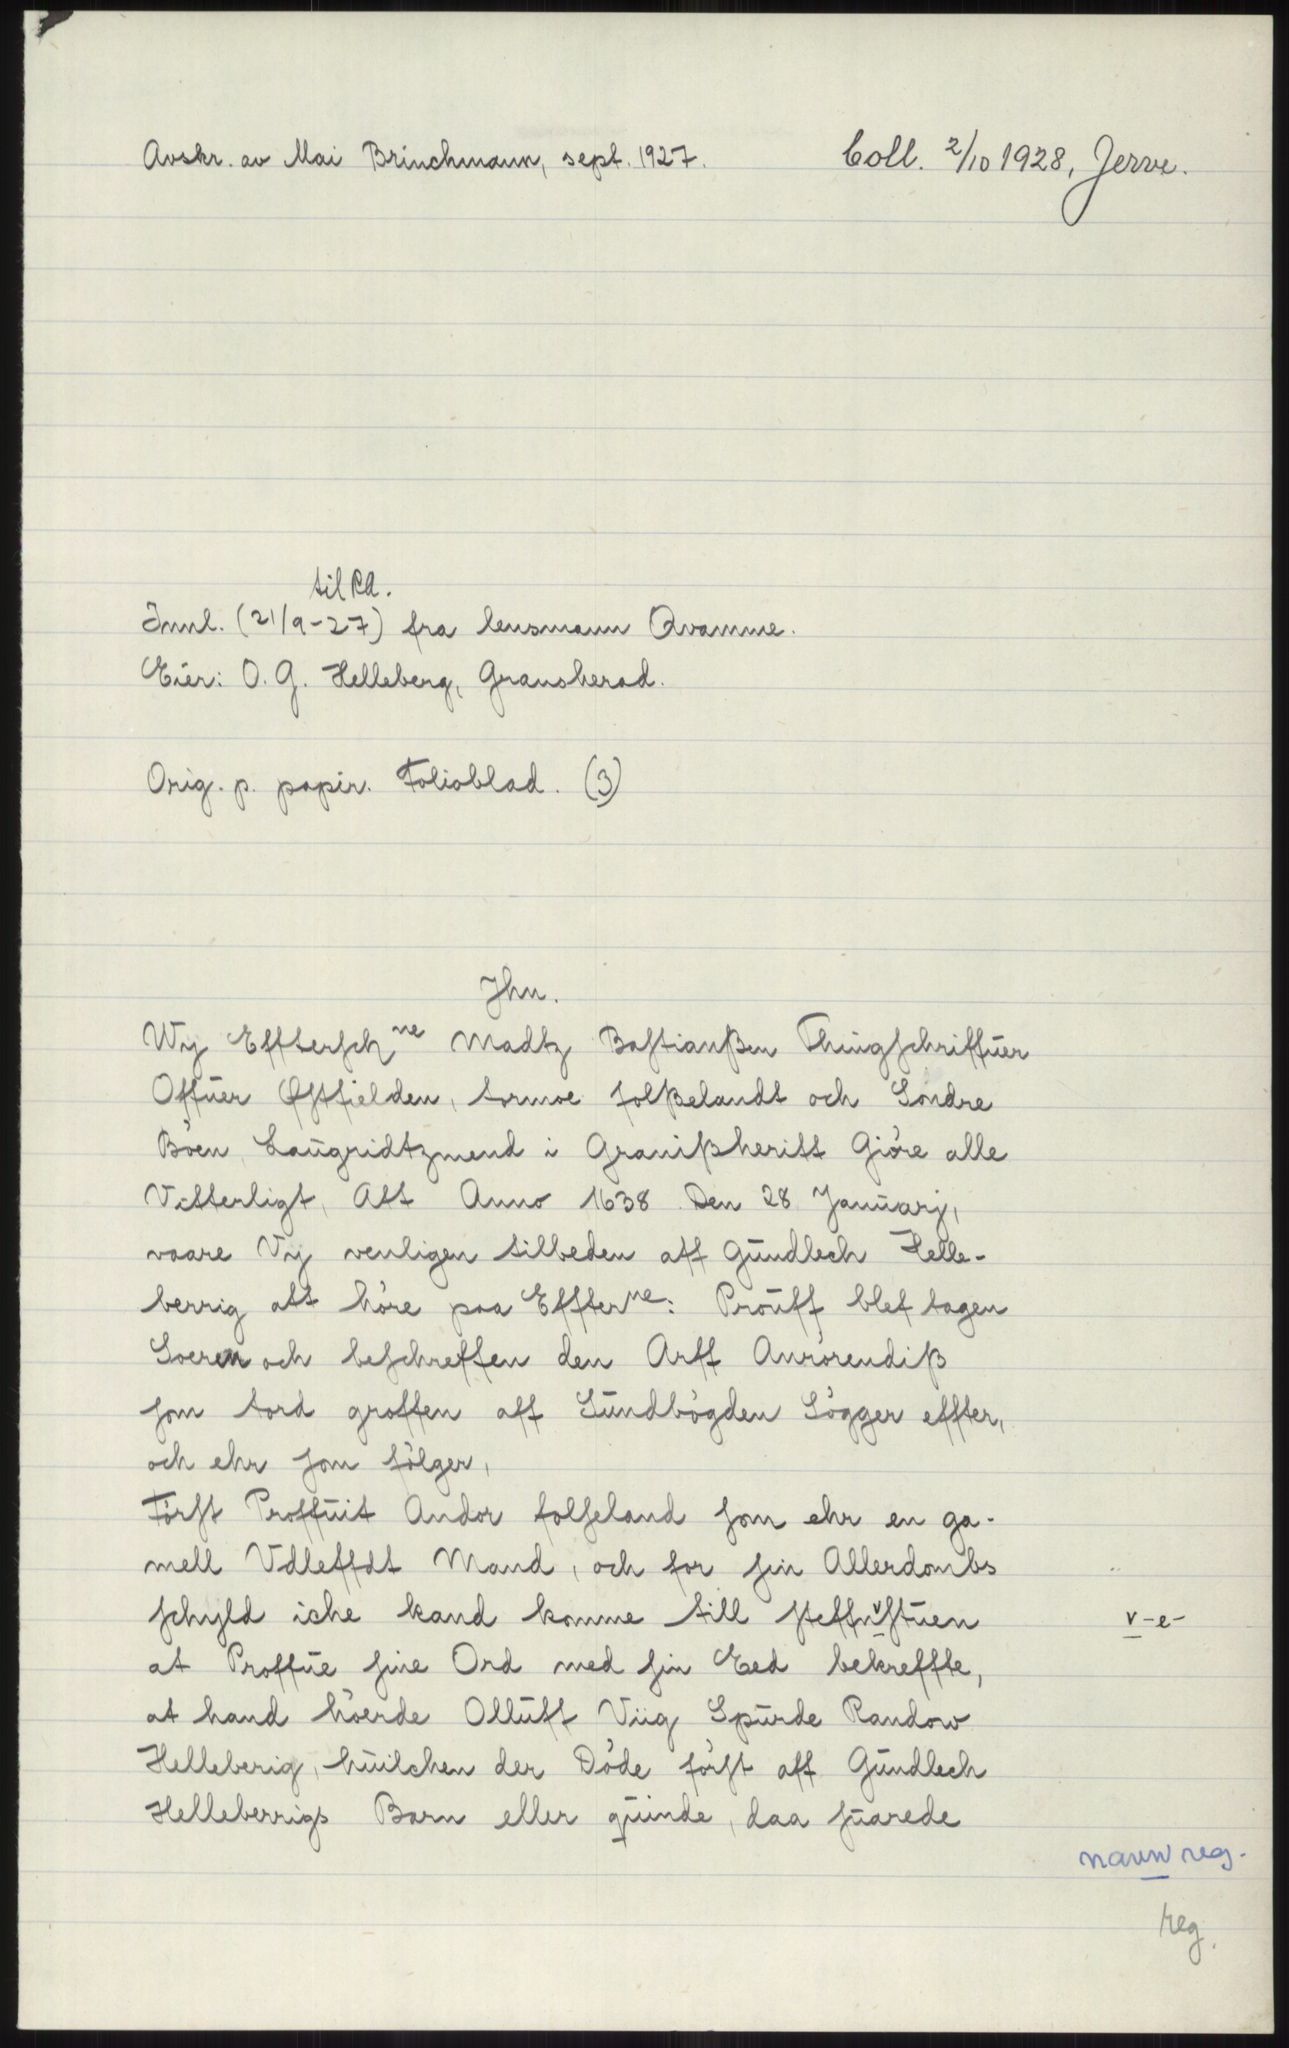 Avskr. av Mai Brinchmann, sept. 1927. Coll. 2/10 1928, Jerve.
til RA.
Innl. (21/9-27) fra lensmann Qvamme.
Eier: O. G. Helleberg, Gransherad.
Orig. p. papir. Folioblad. (3)
Jhn.
Wy Efftersch ne Madtz Bastianßen Thingschriffuer
Offuer Østfielden, tormoe folßelandt och Sondre
Böen Laugridtzmend i Granißheritt Giöre alle
Vitterligt, Att Anno 1638 Den 28 Januarj,
vaare Vy venligen tilbeden aff Gundlech Helle-
berrig att höre paa Effter ne: Prouff blef tagen
Soeren och beschreffen den Arff Anrörendiß
som tord groffen aff Sundbögden Sögger effter,
och ehr som fölger,
Först Proffuit Andor folseland som ehr en ga-
mell Vdleffdt Mand, och for sin Allerdombs
schyld iche kand komme till steffnVstuen
v-e-
at Proffue sine Ord med sin Eed bekreffte,
at hand höerde Olluff Viig Spurde Randow
Helleberig, huilchen der Döde först aff Gundlech
Helleberrigs Barn eller quinde, daa suarede
navn reg.
reg.